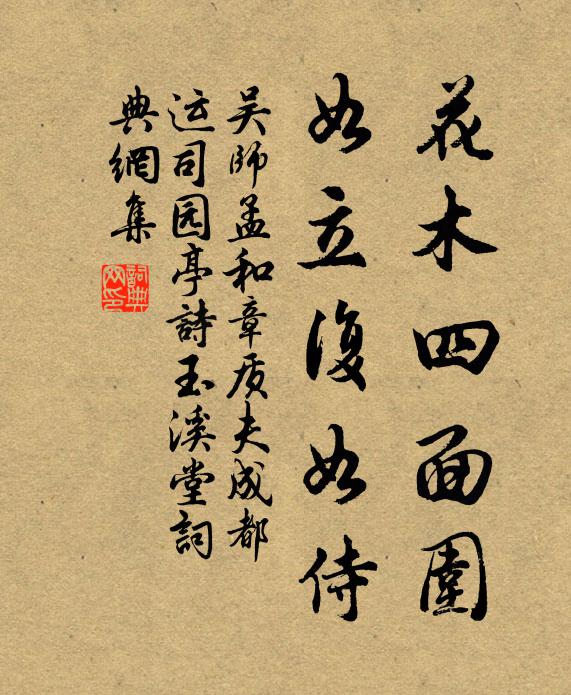 花木四面圍
如立復如侍
吴師孟和章质夫成都
运司园亭詩玉溪堂詞
典網集
詞典
网印